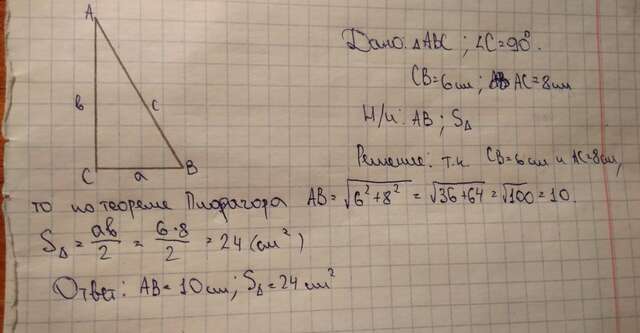 A
в
c
C
a
B
Дано: △ABC; ∠C=90°.
CB=6см; AC=8см
Н/и: AB; S△
Решение: т.к. CB=6см и AC=8см,
то по теореме Пифагора AB=√(6²+8²) = √(36+64) = √100 = 10.
S△ = ab/2 = 6·8/2 = 24 (см²)
Ответ: AB=10см; S△=24см²